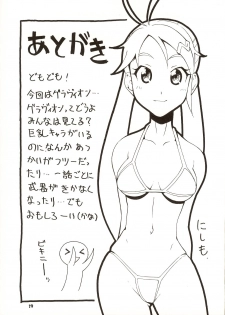 あとがき
どもども！
今回はグラヴィオン。
グラヴィオンってどうよ
みんなは見てる？
巨乳キャラがいる
のになんかあつ
かいがフツーだっ
たり…一話ごとに
武器がきかなく
なったり…でも
おもしろーい(かな)
ビキニー
にしも。
19